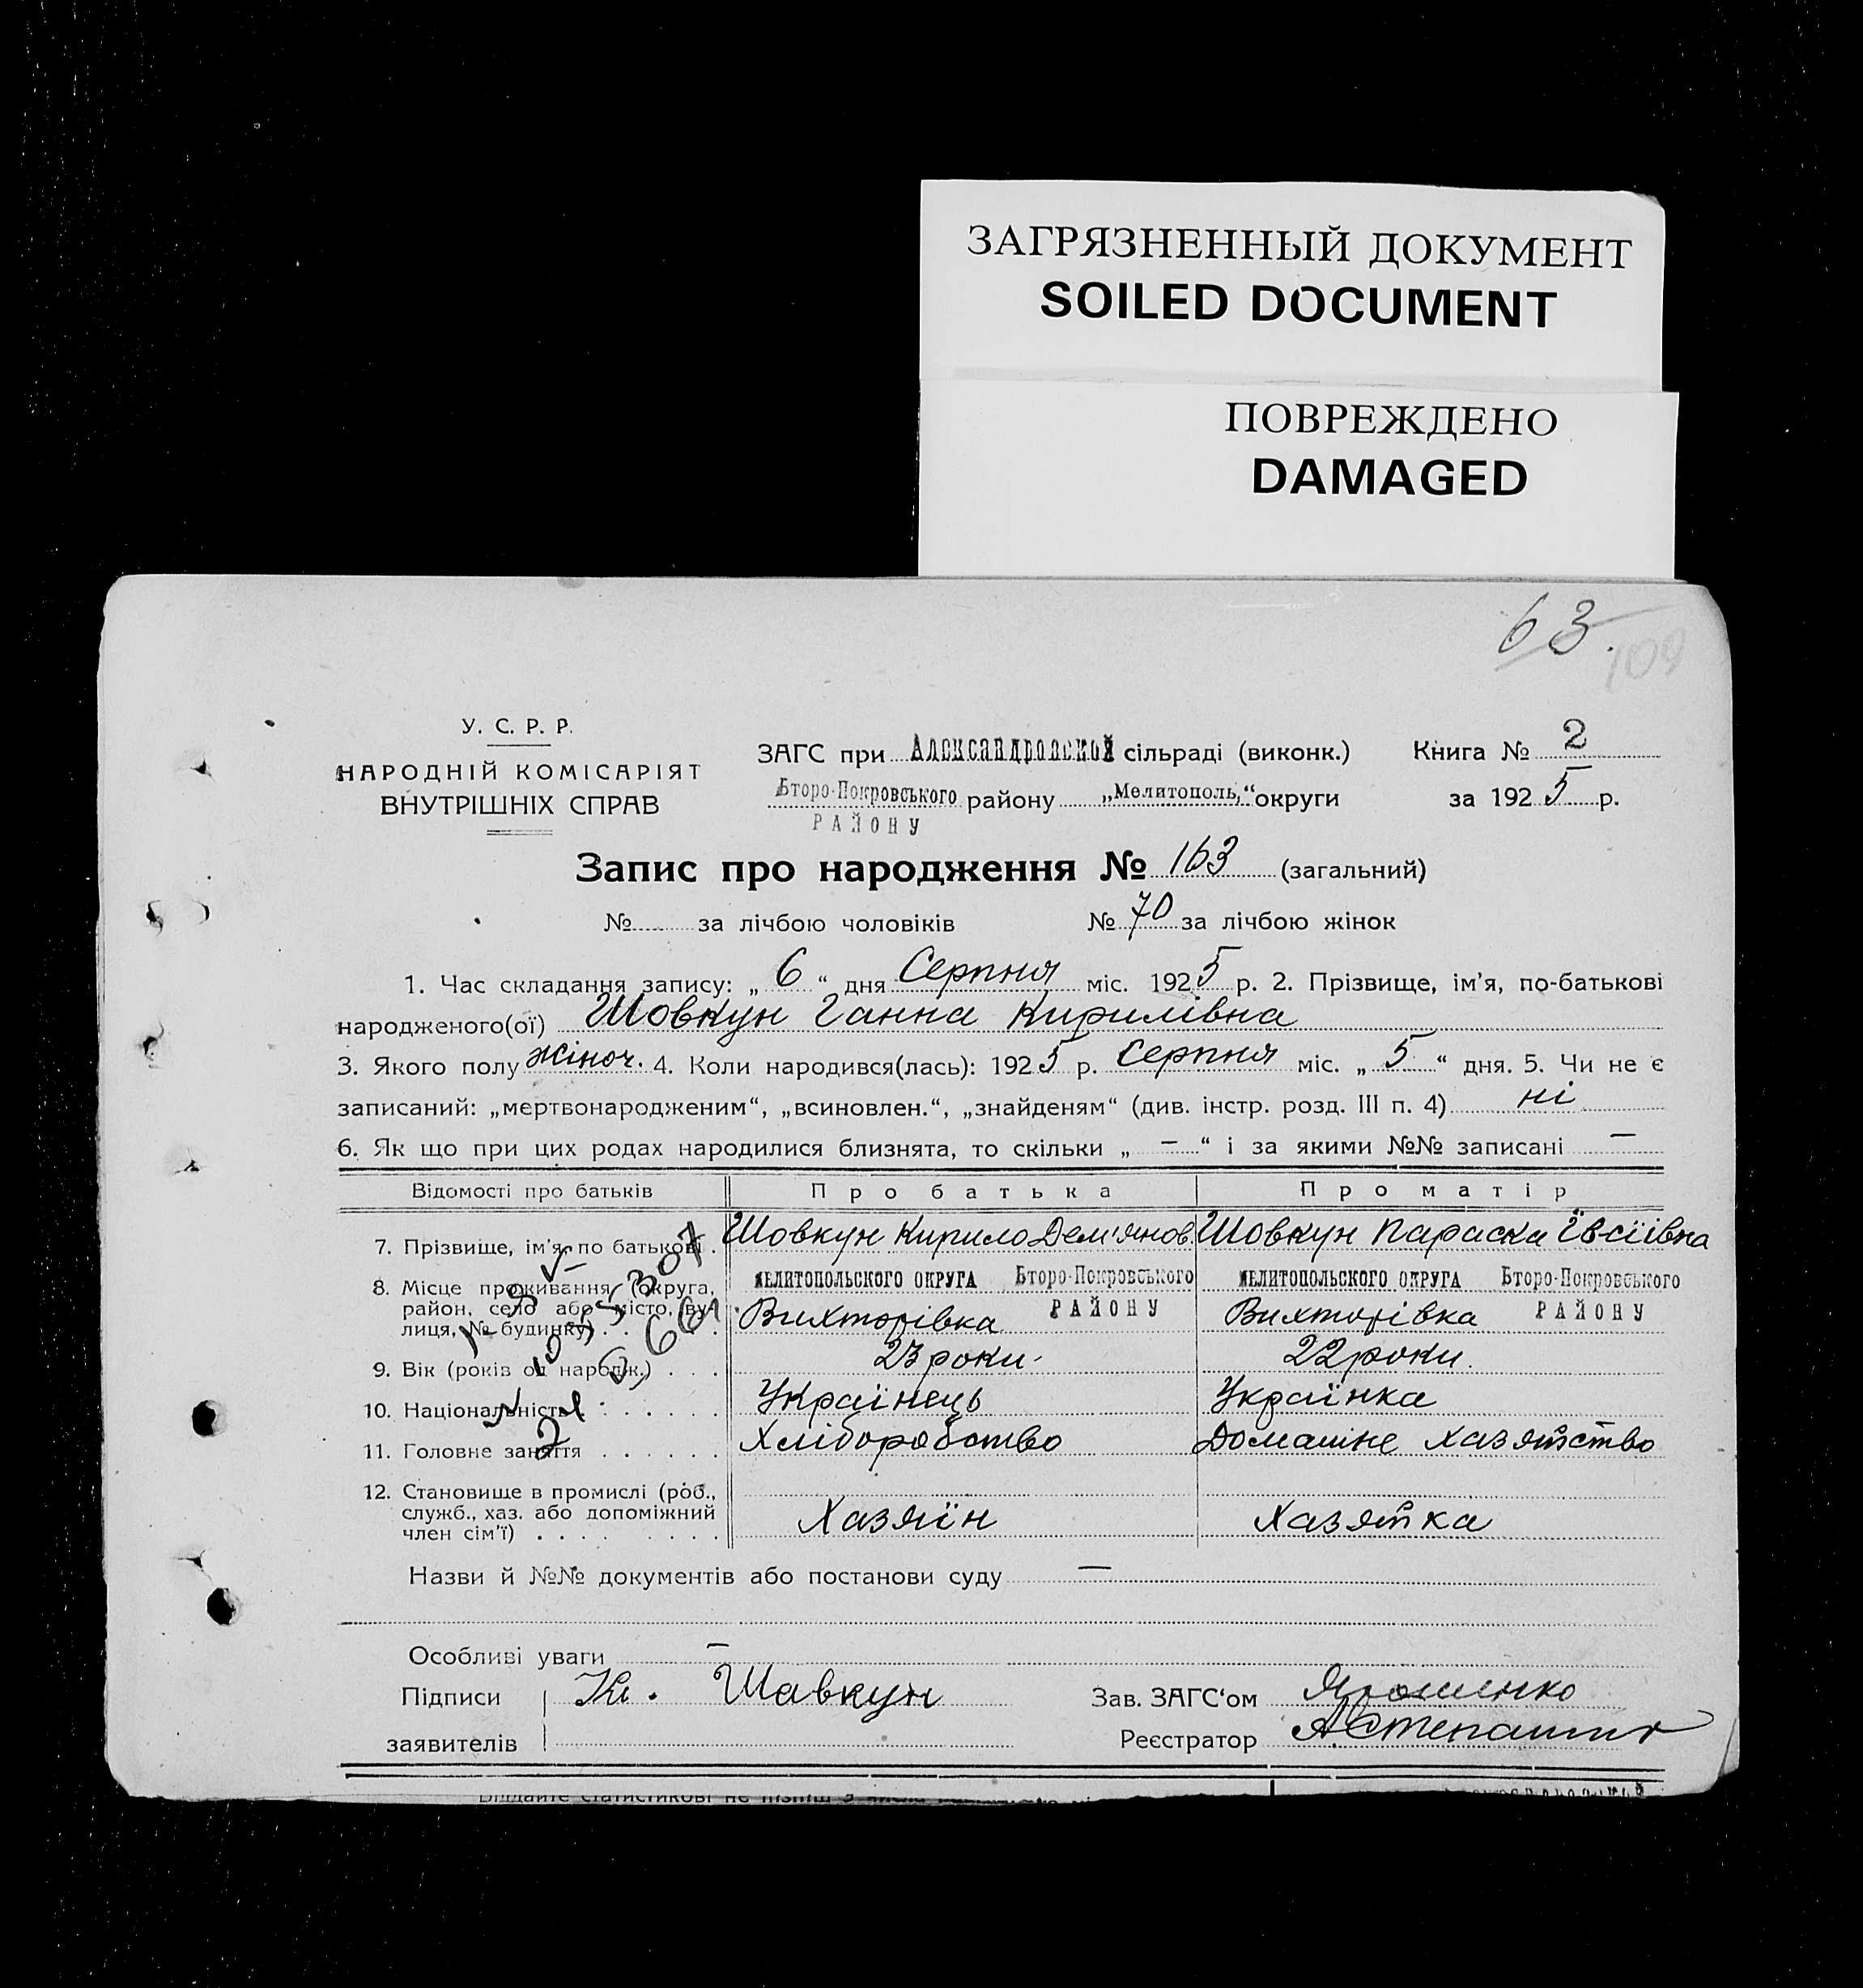 ЗАГРЯЗНЕННЫЙ ДОКУМЕНТ
SOILED DOCUMENT
ПОВРЕЖДЕНО
DAMAGED
63.
109
У. С. Р. Р.
НАРОДНІЙ КОМІСАРІЯТ
ВНУТРІШНІХ СПРАВ
ЗАГС при Александровской сільраді (виконк.) Книга № 2
Второ-Покровського району „Мелитополь,“ округи за 1925 р.
РАЙОНУ
Запис про народження № 163 (загальний)
№ за лічбою чоловіків № 70 за лічбою жінок
1. Час складання запису: „ 6 “ дня Серпня міс. 1925 р. 2. Прізвище, ім'я, по-батькові
народженого(ої) Шовкун Ганна Кирилівна
3. Якого полу жіноч. 4. Коли народився(лась): 1925 р. Серпня міс. „ 5 “ дня. 5. Чи не є
записаний: „мертвонародженим“, „всиновлен.“, „знайденям“ (див. інстр. розд. III п. 4) ні
6. Як що при цих родах народилися близнята, то скільки „ — “ і за якими №№ записані —
Відомості про батьків Про батька Про матір
7. Прізвище, ім'я, по батькові . Шовкун Кирило Дем'янов Шовкун Параска Ївсіївна
8. Місце проживання (округа, МЕЛИТОПОЛЬСКОГО ОКРУГА Второ-Покровського МЕЛИТОПОЛЬСКОГО ОКРУГА Второ-Покровського
район, село або місто, ву- Вихторівка РАЙОНУ Вихторівка РАЙОНУ
лиця, № будинку) . . . .
9. Вік (років од народж.) . . . 23 роки. 22 роки.
10. Національність . . . . . . Українець Українка
11. Головне заняття . . . . . Хліборобство Домашнє хазяйство
12. Становище в промислі (роб.,
служб., хаз. або допоміжний Хазяїн Хазяйка
член сім'ї) . . . . . . .
Назви й №№ документів або постанови суду —
Особливі уваги —
Підписи Шавкун Зав. ЗАГС‘ом Ярошенко
заявителів Реєстратор